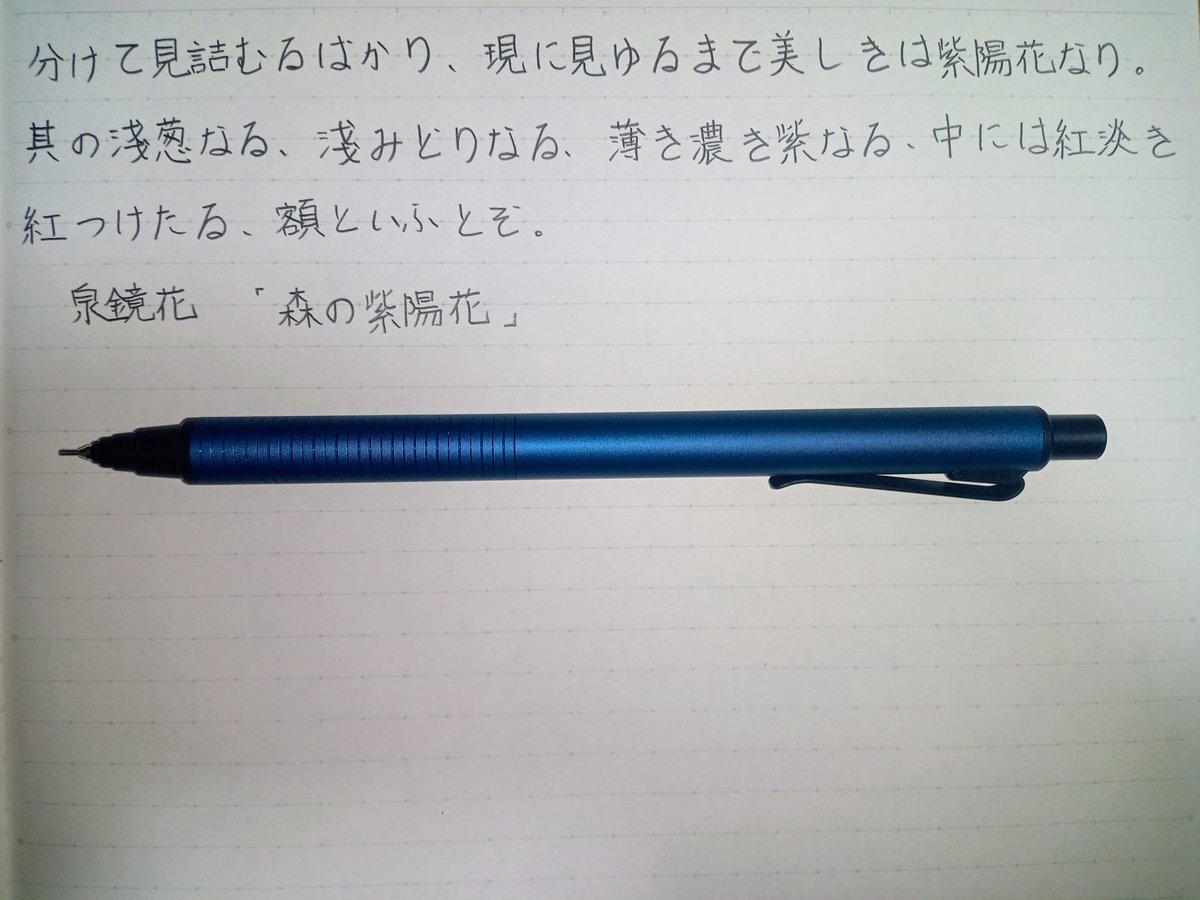 分けて見詰むるばかり、現に見ゆるまで美しきは紫陽花なり。
其の淺葱なる、淺みどりなる、薄き濃き紫なる、中には紅淡き
紅つけたる、額といふとぞ。
泉鏡花 「森の紫陽花」